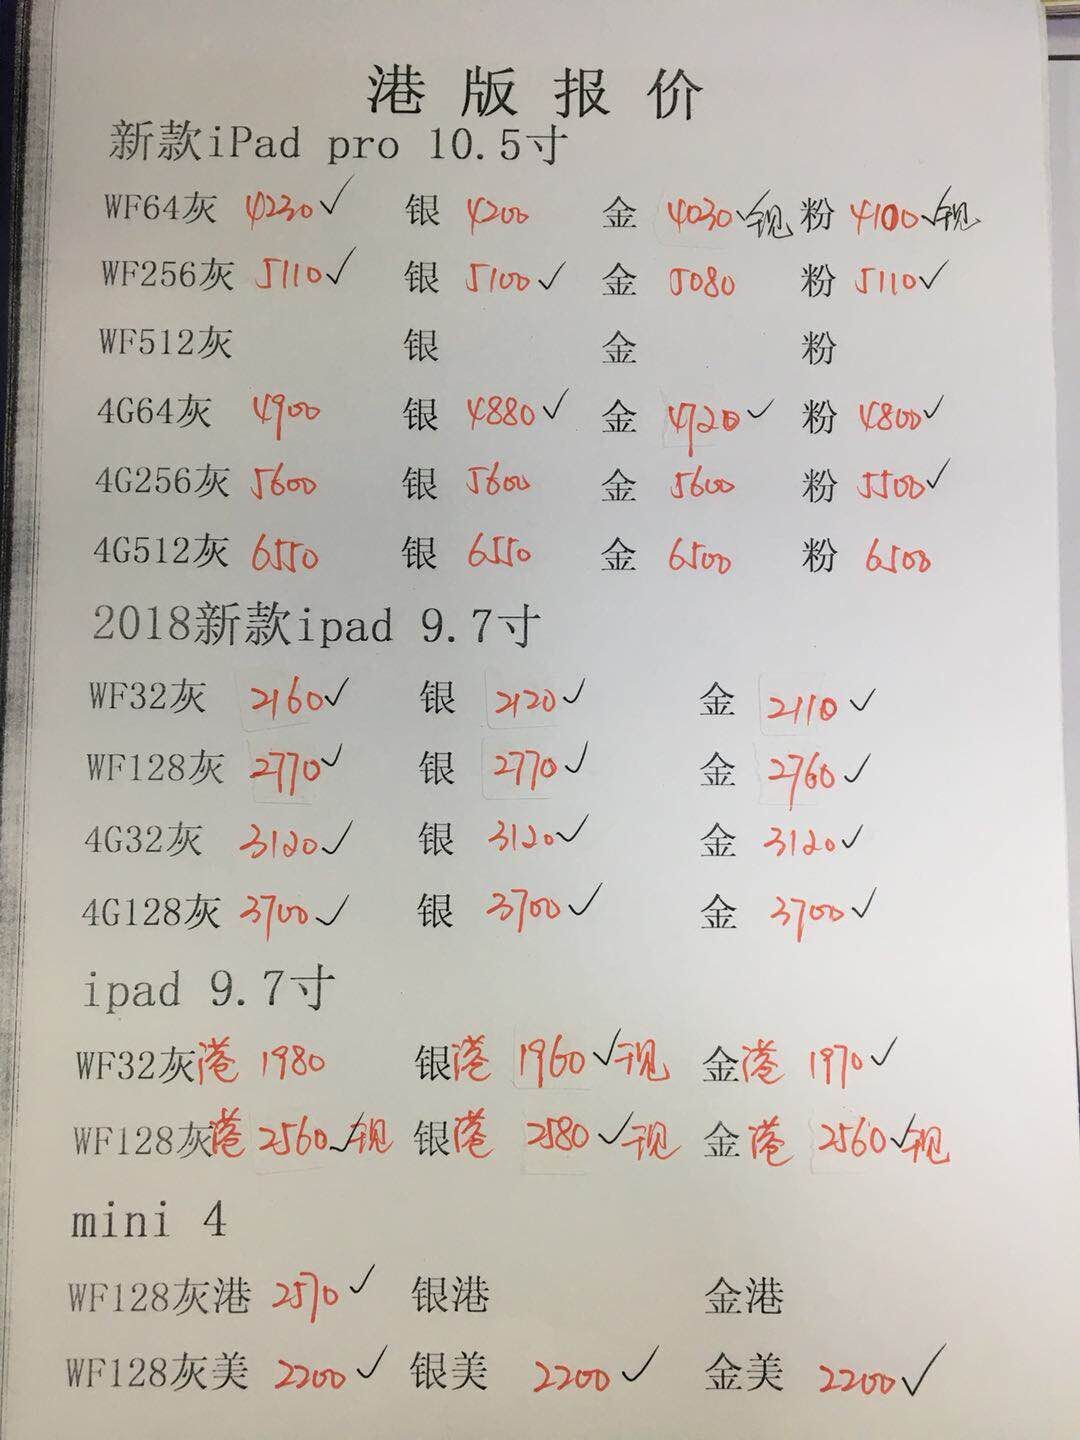 港版报价
新款iPad pro 10.5寸
WF64灰 4230✓ 银 4200 金 4030✓现 粉 4100✓现
WF256灰 5110✓ 银 5100✓ 金 5080 粉 5110✓
WF512灰 银 金 粉
4G64灰 4900 银 4880✓ 金 4720✓ 粉 4800✓
4G256灰 5600 银 5600 金 5600 粉 5500✓
4G512灰 6550 银 6550 金 6500 粉 6500
2018新款ipad 9.7寸
WF32灰 2160✓ 银 2120✓ 金 2110✓
WF128灰 2770✓ 银 2770✓ 金 2760✓
4G32灰 3120✓ 银 3120✓ 金 3120✓
4G128灰 3700✓ 银 3700✓ 金 3700✓
ipad 9.7寸
WF32灰港 1980 银港 1960✓现 金港 1970✓
WF128灰港 2560✓现 银港 2580✓现 金港 2560✓现
mini 4
WF128灰港 2570✓ 银港 金港
WF128灰美 2200✓ 银美 2200✓ 金美 2200✓